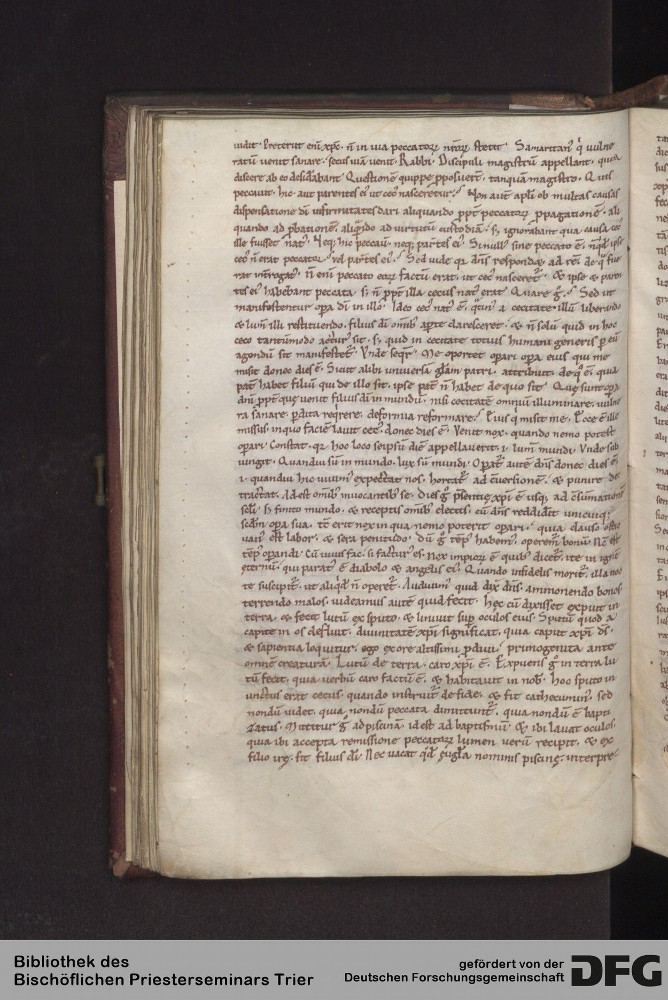 uidit. Preteriit eni xpc. n in uia peccatorꝝ nrorꝝ stetit. Samaritan' q uulne
ratu uenit sanare. secus uia uenit. Rabbi. Discipuli magistru appellant. quia
discere ab eo desiderabant. Questione quippe pposuert. tanqua magistro. Quis
peccauit. hic. aut parentes ei' ut cec' nasceretur? Non aut apli ob multas causas
dispensatione di infirmitates dari. aliquando ppt peccatorꝝ ppagatione. ali
quando ad pbatione. aliqndo ad uirtutu custodia. s; ignorabant qua causa cec'
ille fuisset nat'. Neq; hic peccauit. neq; parentes ei'. Si null' sine peccato e. nuqd ipse
cec' n erat peccator. vel parentes ei'? Sed uide qa dns respondeat ad re. de q fue
rat interrogat'. n eni peccato eorꝝ factu erat. ut cec' nasceret. & ipse & paren
tes ei' habebant peccata. s; n ppt illa cecus nat' erat. Quare g? Sed ut
manifestentur opa di in illo. Ideo cec' nat' e.
& lum illi restituendo. filius di omib; apte claresceret. & n solu quid in hoc
ceco tantumodo actur' sit. s; quid in cecitate totius humani generis p eu
agendu sit manifestet. Vnde seqr. Me oportet opari opa eius qui me
misit donec dies e. Sicut alibi uniuersa gla patri. attribuit. de q e. quia
pat habet filiu qui de illo sit. ipse pat n habet de quo sit. Que sunt opa
dni. ppt que uenit filius di in mundu. nisi cecitate omniu illuminare. uulne
ra sanare. pdita reqrere. deformia reformare? Eius q misit me. Ecce e ille
missus. in quo facie lauit cec'. donec dies e. Venit nox. quando nemo potest
opari. Constat. qa hoc loco seipsu die appellauerit. i. lum mundi. Vnde sub
iungit. Quandiu su in mundo. lux su mundi. Opat aute dns donec dies e.
i. quandiu hic uiuim' expectat nos. hortat ad cuersione. & punire de
tractat. Id est omib; inuocantib; se. dies g psentie xpi e usq; ad csumatione
seli. S; finito mundo. & receptis omib; electis. cu dns reddidit unicuiq;
scdm opa sua. te erit nox in qua nemo poterit opari. quia clauso ostio
uan' est labor. & sera penitudo. du g temp' habem'. operem' bonu. Nc est
temp' operandi. Cu iniusti fac. si factur' es. Nox impiorꝝ e quib; dicet. ite in igne
eternu. qui parat' e diabolo & angelis ei'. Quando infidelis morit. illa noc
te suscipit. ut aliqd n operet. Audiuim' quid dix dns. ammonendo bonos.
terrendo malos. uideamus aute quid fecit. Hec cu dixisset expuit in
terra. & fecit lutu ex sputo. & liniuit sup oculos eius. Sputu quod a
capite in os defluit. diuinitate xpi significat. quia caput xpi ds.
& sapientia loquitur. ego ex ore altissimi pdiui. primogenita ante
omne creatura. Lutu de terra. caro xpi e. Expuens g in terra lu
tu fecit. quia uerbu caro factu e. & habitauit in nob'. Hoc sputo in
unctus erat cecus. quando instruit de fide. & fit cathecumin'. sed
nondu uidet. quia nondu peccata dimittunt. quia nondu e bapti
zatus. Mittitur g ad piscina. id est ad baptismu. & ibi lauat oculos.
quia ibi accepta remissione peccatorꝝ lumen ueru recipit. & ex
filio ire. fit filius di. Nec uacat nominis piscine. interpre
Bibliothek des
Bischöflichen Priesterseminars Trier
gefördert von der
Deutschen Forschungsgemeinschaft
DFG